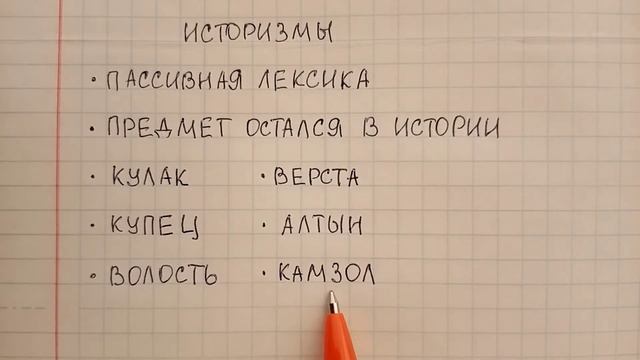 ИСТОРИЗМЫ
· ПАССИВНАЯ ЛЕКСИКА
· ПРЕДМЕТ ОСТАЛСЯ В ИСТОРИИ
· КУЛАК · ВЕРСТА
· КУПЕЦ · АЛТЫН
· ВОЛОСТЬ · КАМЗОЛ